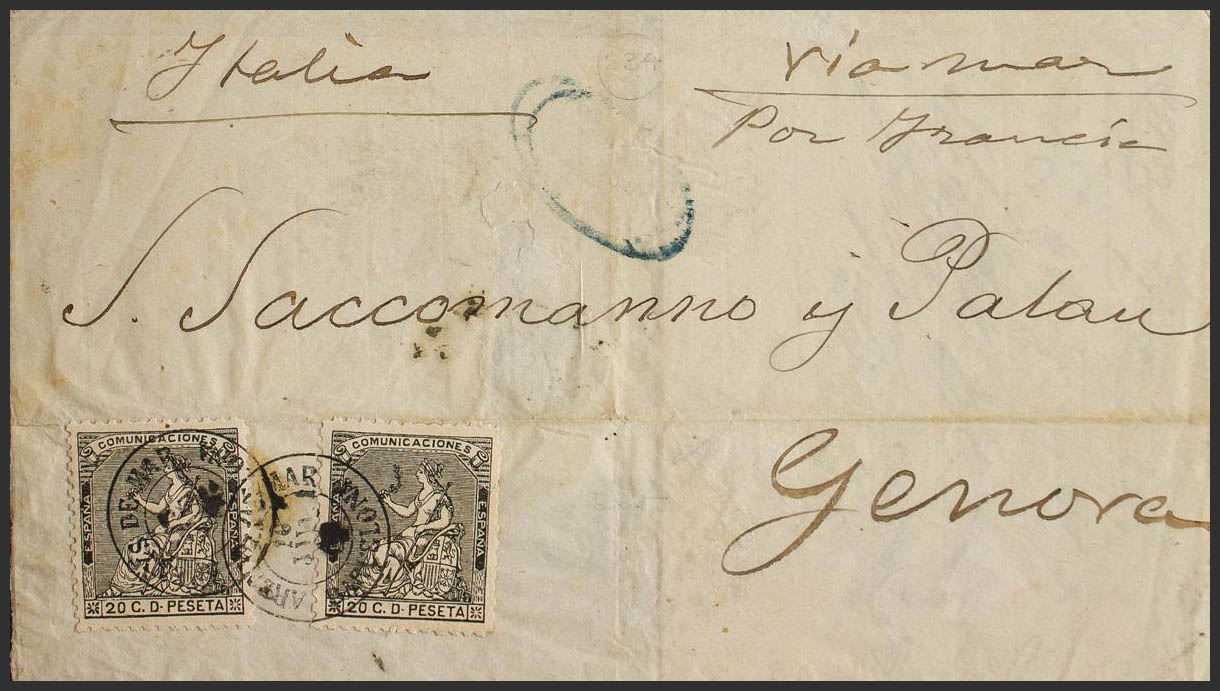 Italia
234
Via mar
Por Francia
S. Saccomanno y Palau
Genova
COMUNICACIONES
ESPAÑA
ESPAÑA
20 C. D. PESETA
COMUNICACIONES
ESPAÑA
20 C. D. PESETA
DE MAR
MAR
18
ARE